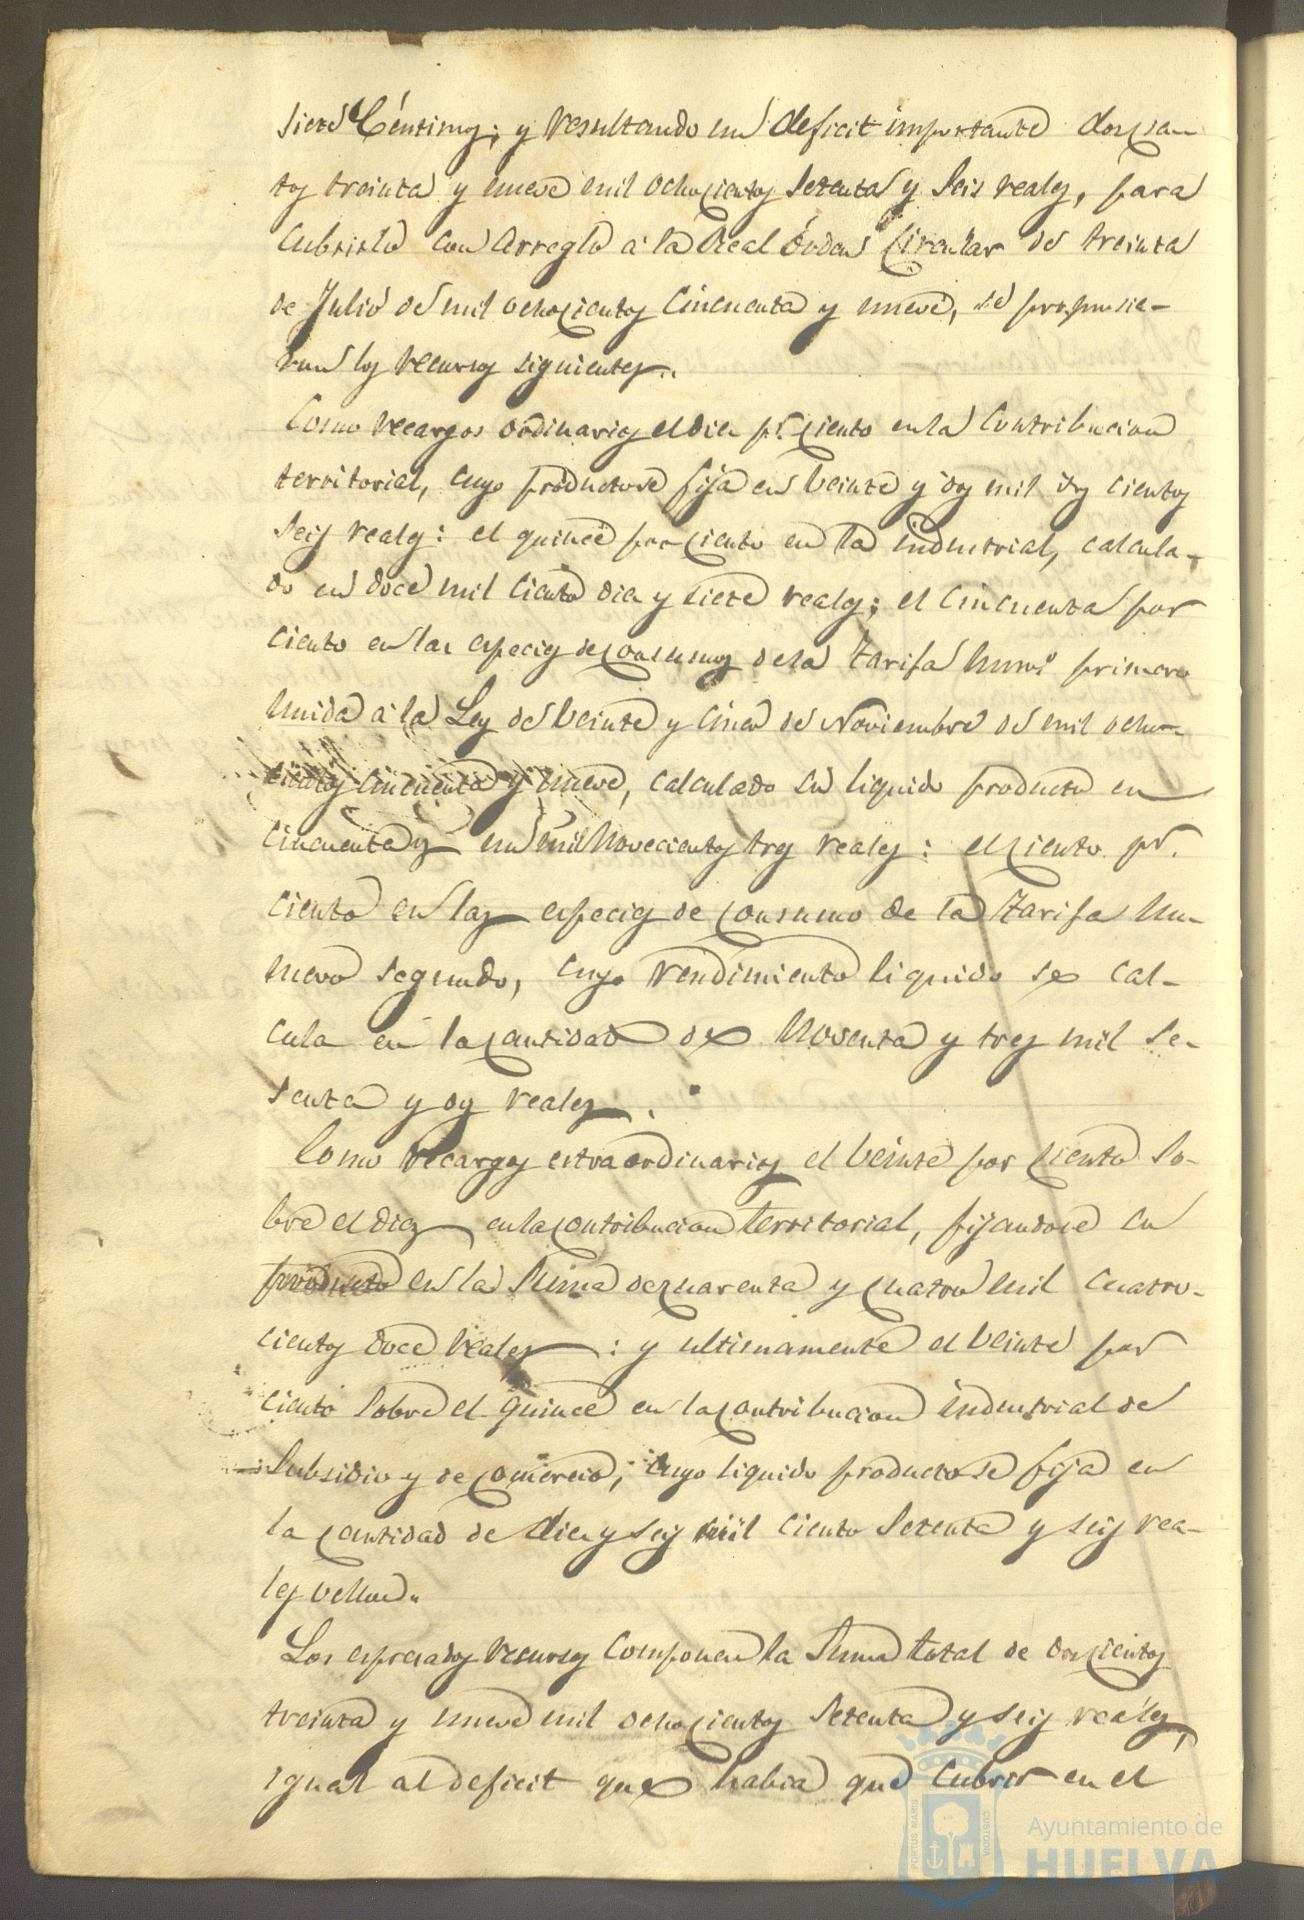 siete Céntimos; y resultando un deficit importante doscien-
tos treinta y nueve mil ochocientos setenta y seis reales, para
cubrirlo con arreglo á la Real órden Circular de treinta
de Julio de mil ochocientos cincuenta y nueve, se propusie-
ron los recursos siguientes.
Como recargos ordinarios el diez pr. ciento en la Contribucion
territorial, cuyo producto se fija en veinte y dos mil dos cientos
seis reales: el quince por ciento en la industrial, calcula-
do en doce mil ciento diez y siete reales; el cincuenta por
ciento en las especies de consumos de la tarifa numo. primero
unida á la Ley de veinte y cinco de Noviembre de mil ocho-
cientos cincuenta y nueve, calculado su liquido producto en
cincuenta y un mil novecientos tres reales: el ciento pr.
ciento en las especies de consumo de la tarifa nu-
mero segundo, cuyo rendimiento liquido se cal-
cula en la cantidad de noventa y tres mil se-
senta y dos reales.
Como recargos estraordinarios el veinte por ciento so-
bre el diez en la contribucion territorial, fijandose su
producto en la suma de cuarenta y cuatro mil cuatro-
cientos doce reales: y ultimamente el veinte por
ciento sobre el quince en la contribucion industrial de
subsidio y de comercio, cuyo liquido producto se fija en
la cantidad de diez y seis mil ciento setenta y seis rea-
les vellon.
Los espresados recursos componen la suma total de doscientos
treinta y nueve mil ochocientos setenta y seis reales,
igual al deficit que habia que cubrir en el
PORTUS MARIS CUSTODIA
Ayuntamiento de
HUELVA